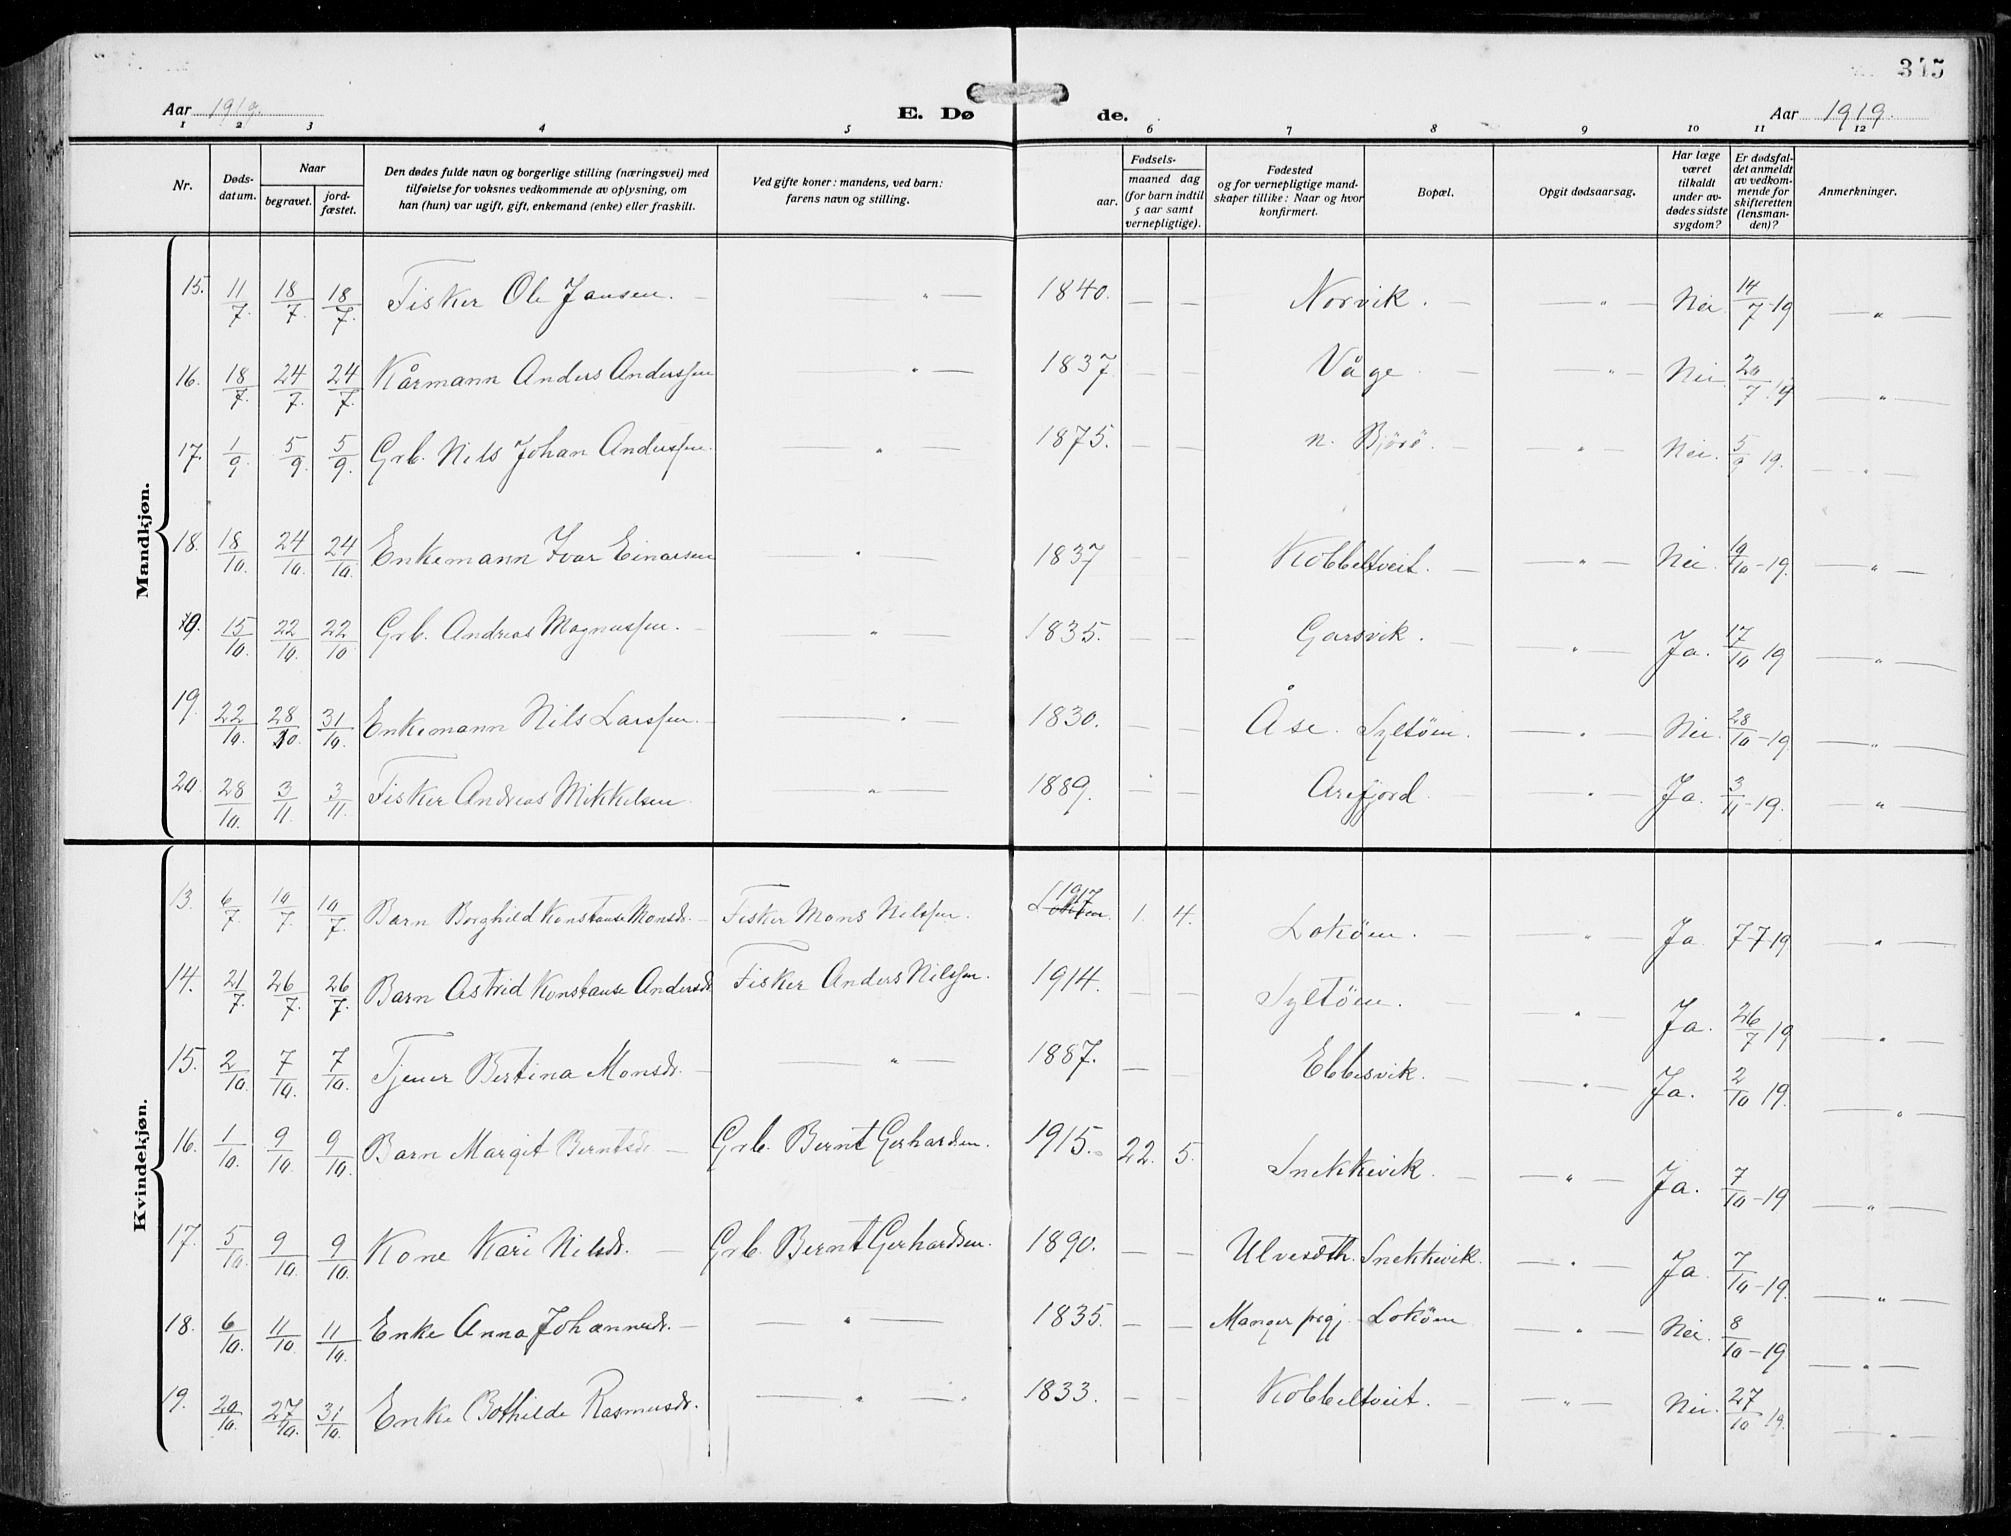 345
Aar 1919. E. Dø de. Aar 1919.
1 2 3 4 5 6 7 8 9 10 11 12
Nr. Døds-datum. Naar begravet. jord-fæstet. Den dødes fulde navn og borgerlige stilling (næringsvei) med tilføielse for voksnes vedkommende av oplysning, om han (hun) var ugift, gift, enkemand (enke) eller fraskilt. Ved gifte koner: mandens, ved barn: farens navn og stilling. Fødsels- aar. maaned dag (for barn indtil 5 aar samt vernepligtige). Fødested og for vernepligtige mand-skaper tillike: Naar og hvor konfirmert. Bopæl. Opgit dødsaarsag. Har læge været tilkaldt under av-dødes sidste sygdom? Er dødsfal-det anmeldt av vedkom-mende for skifteretten (lensman-den)? Anmerkninger.
Mandkjøn.
15. 11/7. 18/7. 18/7. Fisker Ole Jansen. — — " — 1840. — — Norvik. — — " — Nei 14/7-19 — " —
16. 18/7. 24/7. 24/7. Kårmann Anders Anderssen — " — 1837. — — Våge. — — " — Nei. 20/7.19 — " —
17. 1/9. 5/9. 5/9. Grb. Nils Johan Anderssen. — " — 1875. — — n. Bjørø. — — " — Nei. 5/9 19. — " —
18. 18/10. 24/10. 24/10. Enkemann Ivar Einarsen — " — 1837 — — Kobbeltveit. — — " — Nei. 19/10-19. — " —
19. 15/10. 22/10. 22/10 Grb. Andreas Magnussen. — — " — 1835. — — Garsvik. — — " — Ja. 17/10 19 — " —
19. 22/10. 28/10. 31/10. Enkemann Nils Larssen. — — " — 1830. — — Åse. Syltøen. — " — Nei. 28/10-19 — " —
20. 28/10. 3/11. 3/11. Fisker Andreas Mikkelsen — " — 1889. — — Arefjord — — " — Ja. 3/11-19. — " —
Kvindekjøn.
13. 6/7. 10/7. 10/7. Barn Borghild Konstanse Monsdr. — Fisker Mons Nilssen. 1917 1. 4. Lokøen. — — " — Ja 7-7-19 — " —
14. 21/7. 26/7. 26/7. Barn Astrid Konstanse Andersdr Fisker Anders Nilssen. 1914. — — Syltøen. — — " — Ja. 26/7 19 — " —
15. 2/10. 7/10. 7/10. Tjener Bertina Monsdr. — — " — 1887. — — Ebbesvik. — — " — Ja. 2/10 19. — " —
16. 1/10. 9/10. 9/10. Barn Margit Berntsdr — Grb. Bernt Gerhardsen. 1915. 22. 5. Snekkevik. — — " — Ja. 7/10-19 — " —
17. 5/10. 9/10. 9/10. Kone Kari Nilsdr. — Grb. Bernt Gerhardsen. 1890. — — Ulvesdth. Snekkevik. — " — Ja. 7/10-19. — " —
18. 6/10. 11/10. 11/10. Enke Anna Johannesdr. — — " — 1835. — — Manger prgj. Lokøen — " — Nei. 8/10-19 — " —
19. 20/10. 27/10. 31/10. Enke Bothilde Rasmusdr. — " — 1833. — — Kobbeltveit. — — " — Nei. 27/10 19. — " —